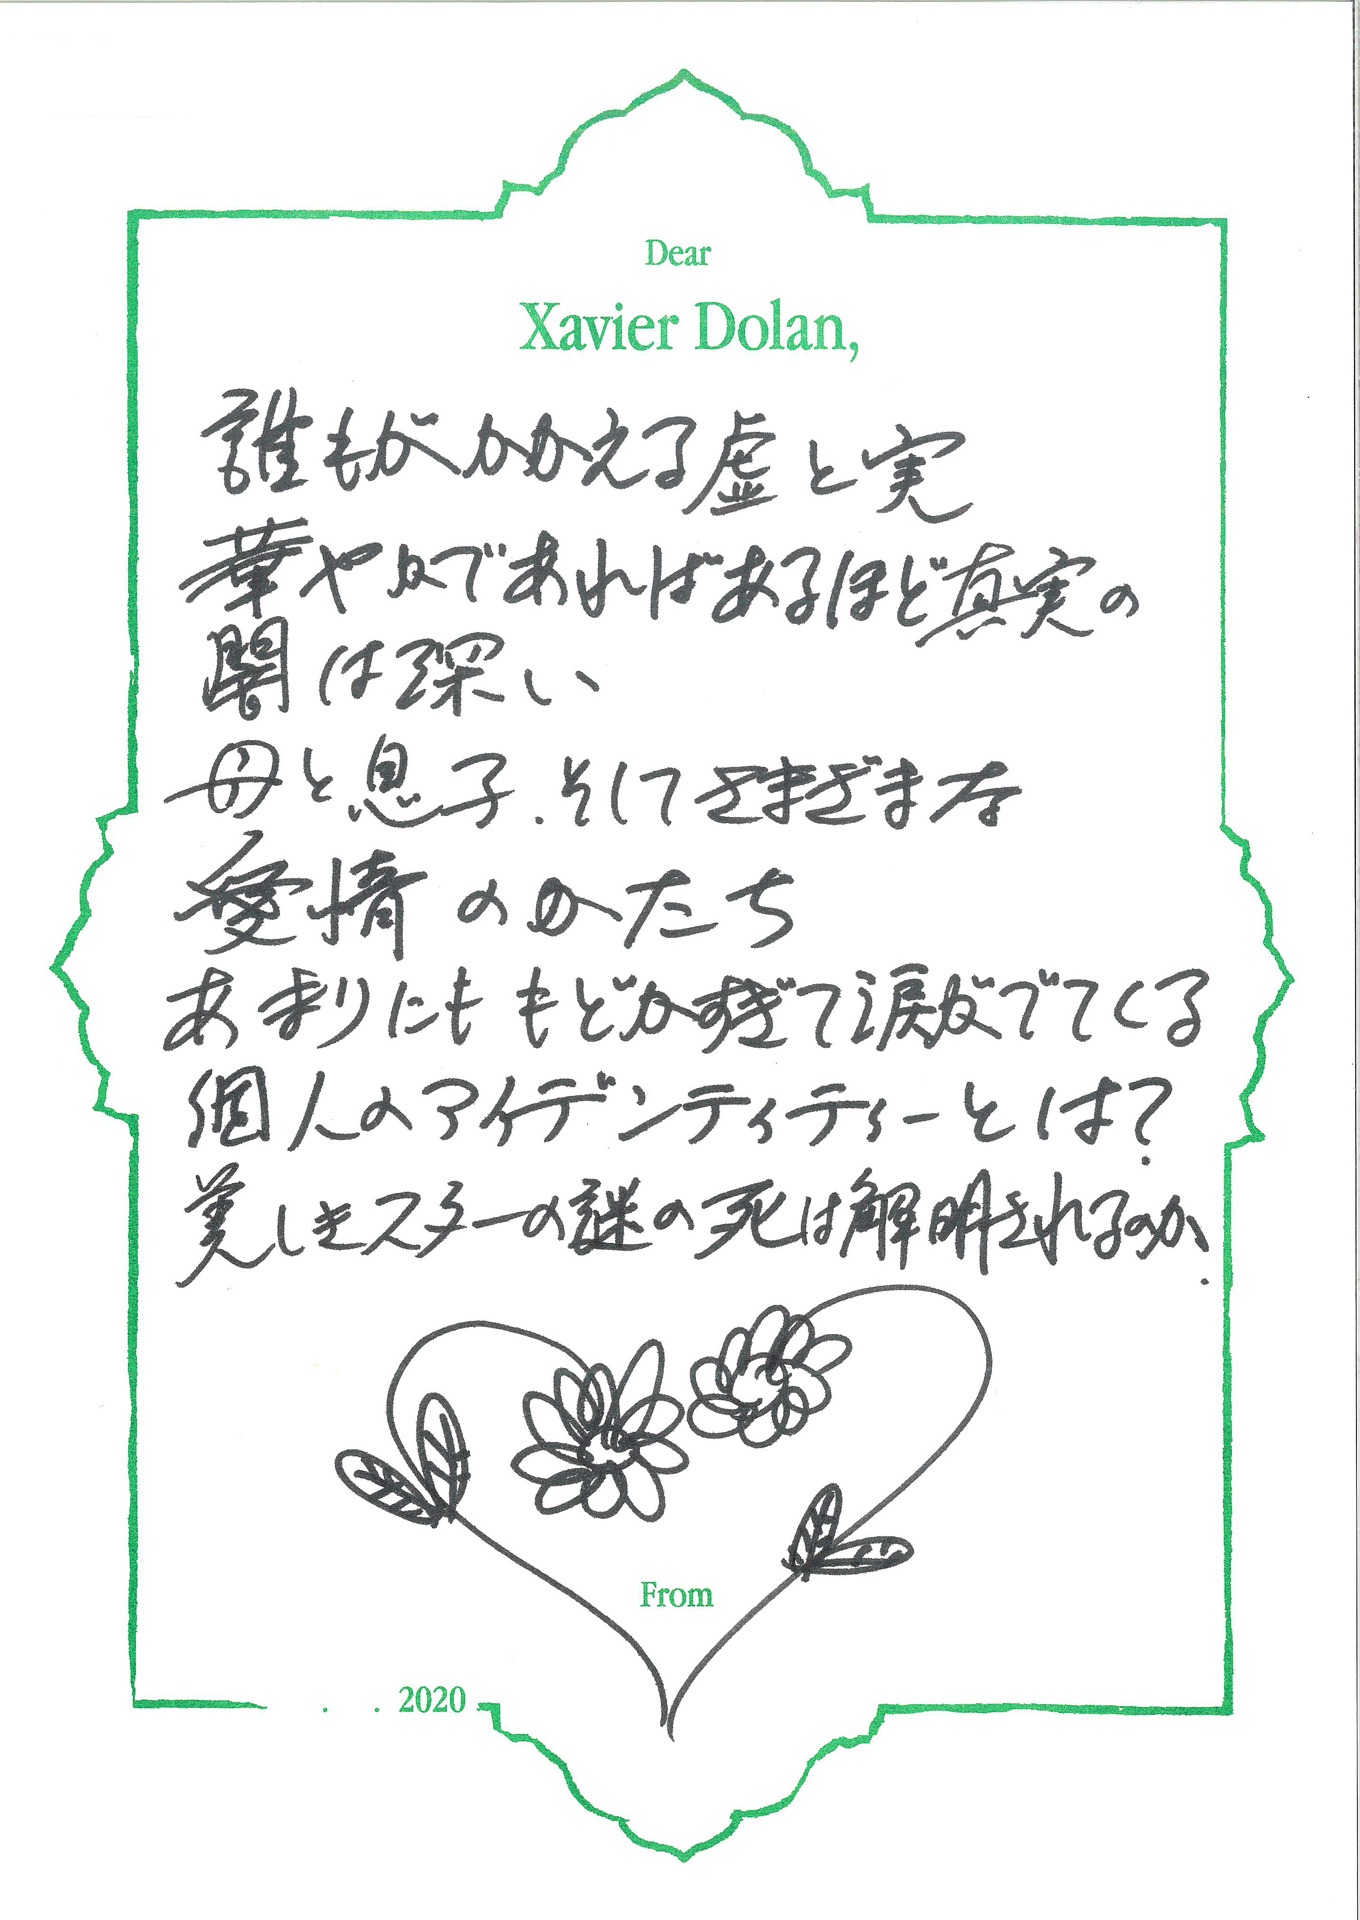 Dear
Xavier Dolan,
誰もがかかえる虚と実
華やかであればあるほど真実の
闇は深い
母と息子、そしてさまざまな
愛情のかたち
あまりにももどかすぎて涙がでてくる
個人のアイデンティティーとは?
美しきスターの謎の死は解明されるのか.
From
. . 2020